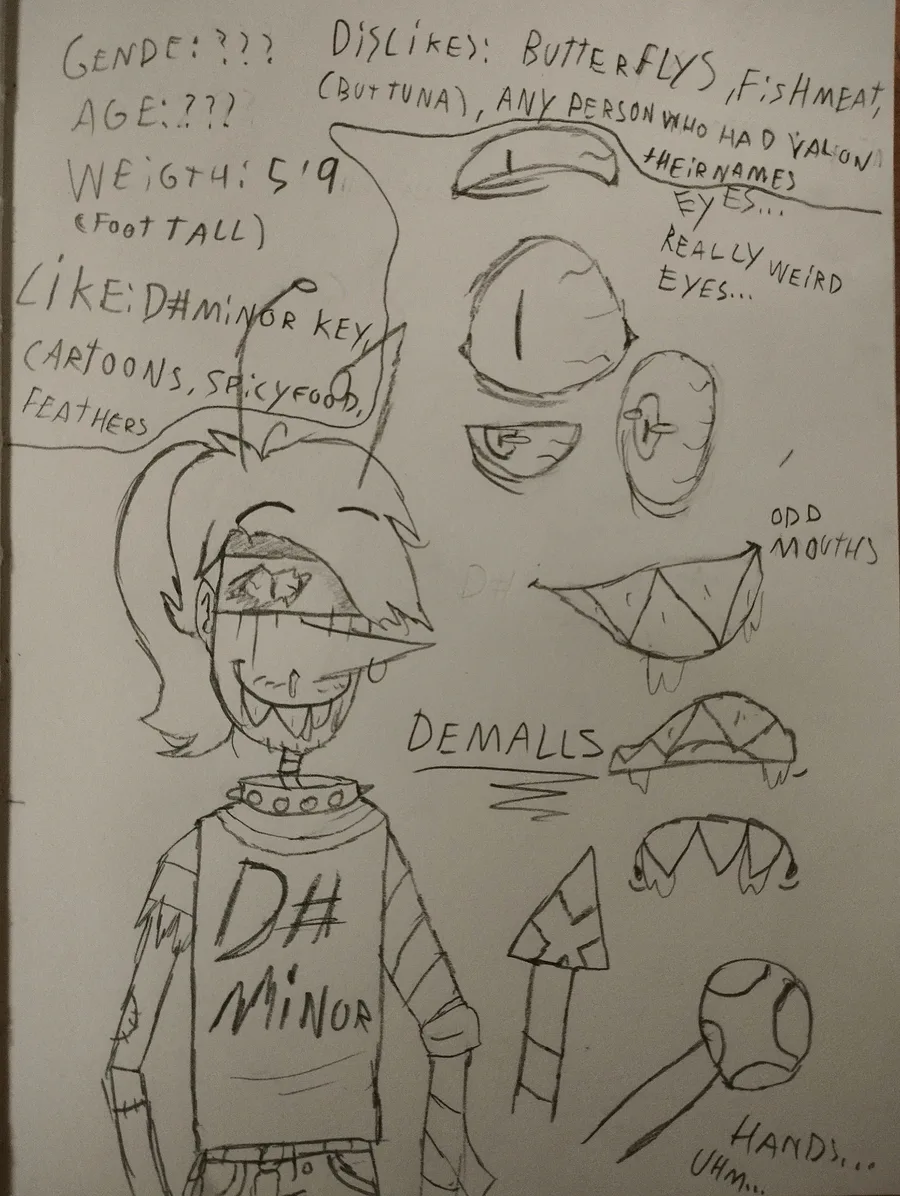 GENDE: ???
AGE: ???
WEiGTH: 5'9
(FOOT TALL)
LiKE: D# MiNOR KEY,
CARTOONS, SPiCY FOOD,
FEATHERS
DiSLiKES: BUTTERFLYS, FiSHMEAT,
(BUT TUNA), ANY PERSON WHO HAD VAL ON
THEIR NAMES
EYES...
REALLY WEIRD
EYES...
ODD
MOUTHS
D#
DEMALLS
D#
MiNOR
HANDS...
UHM...